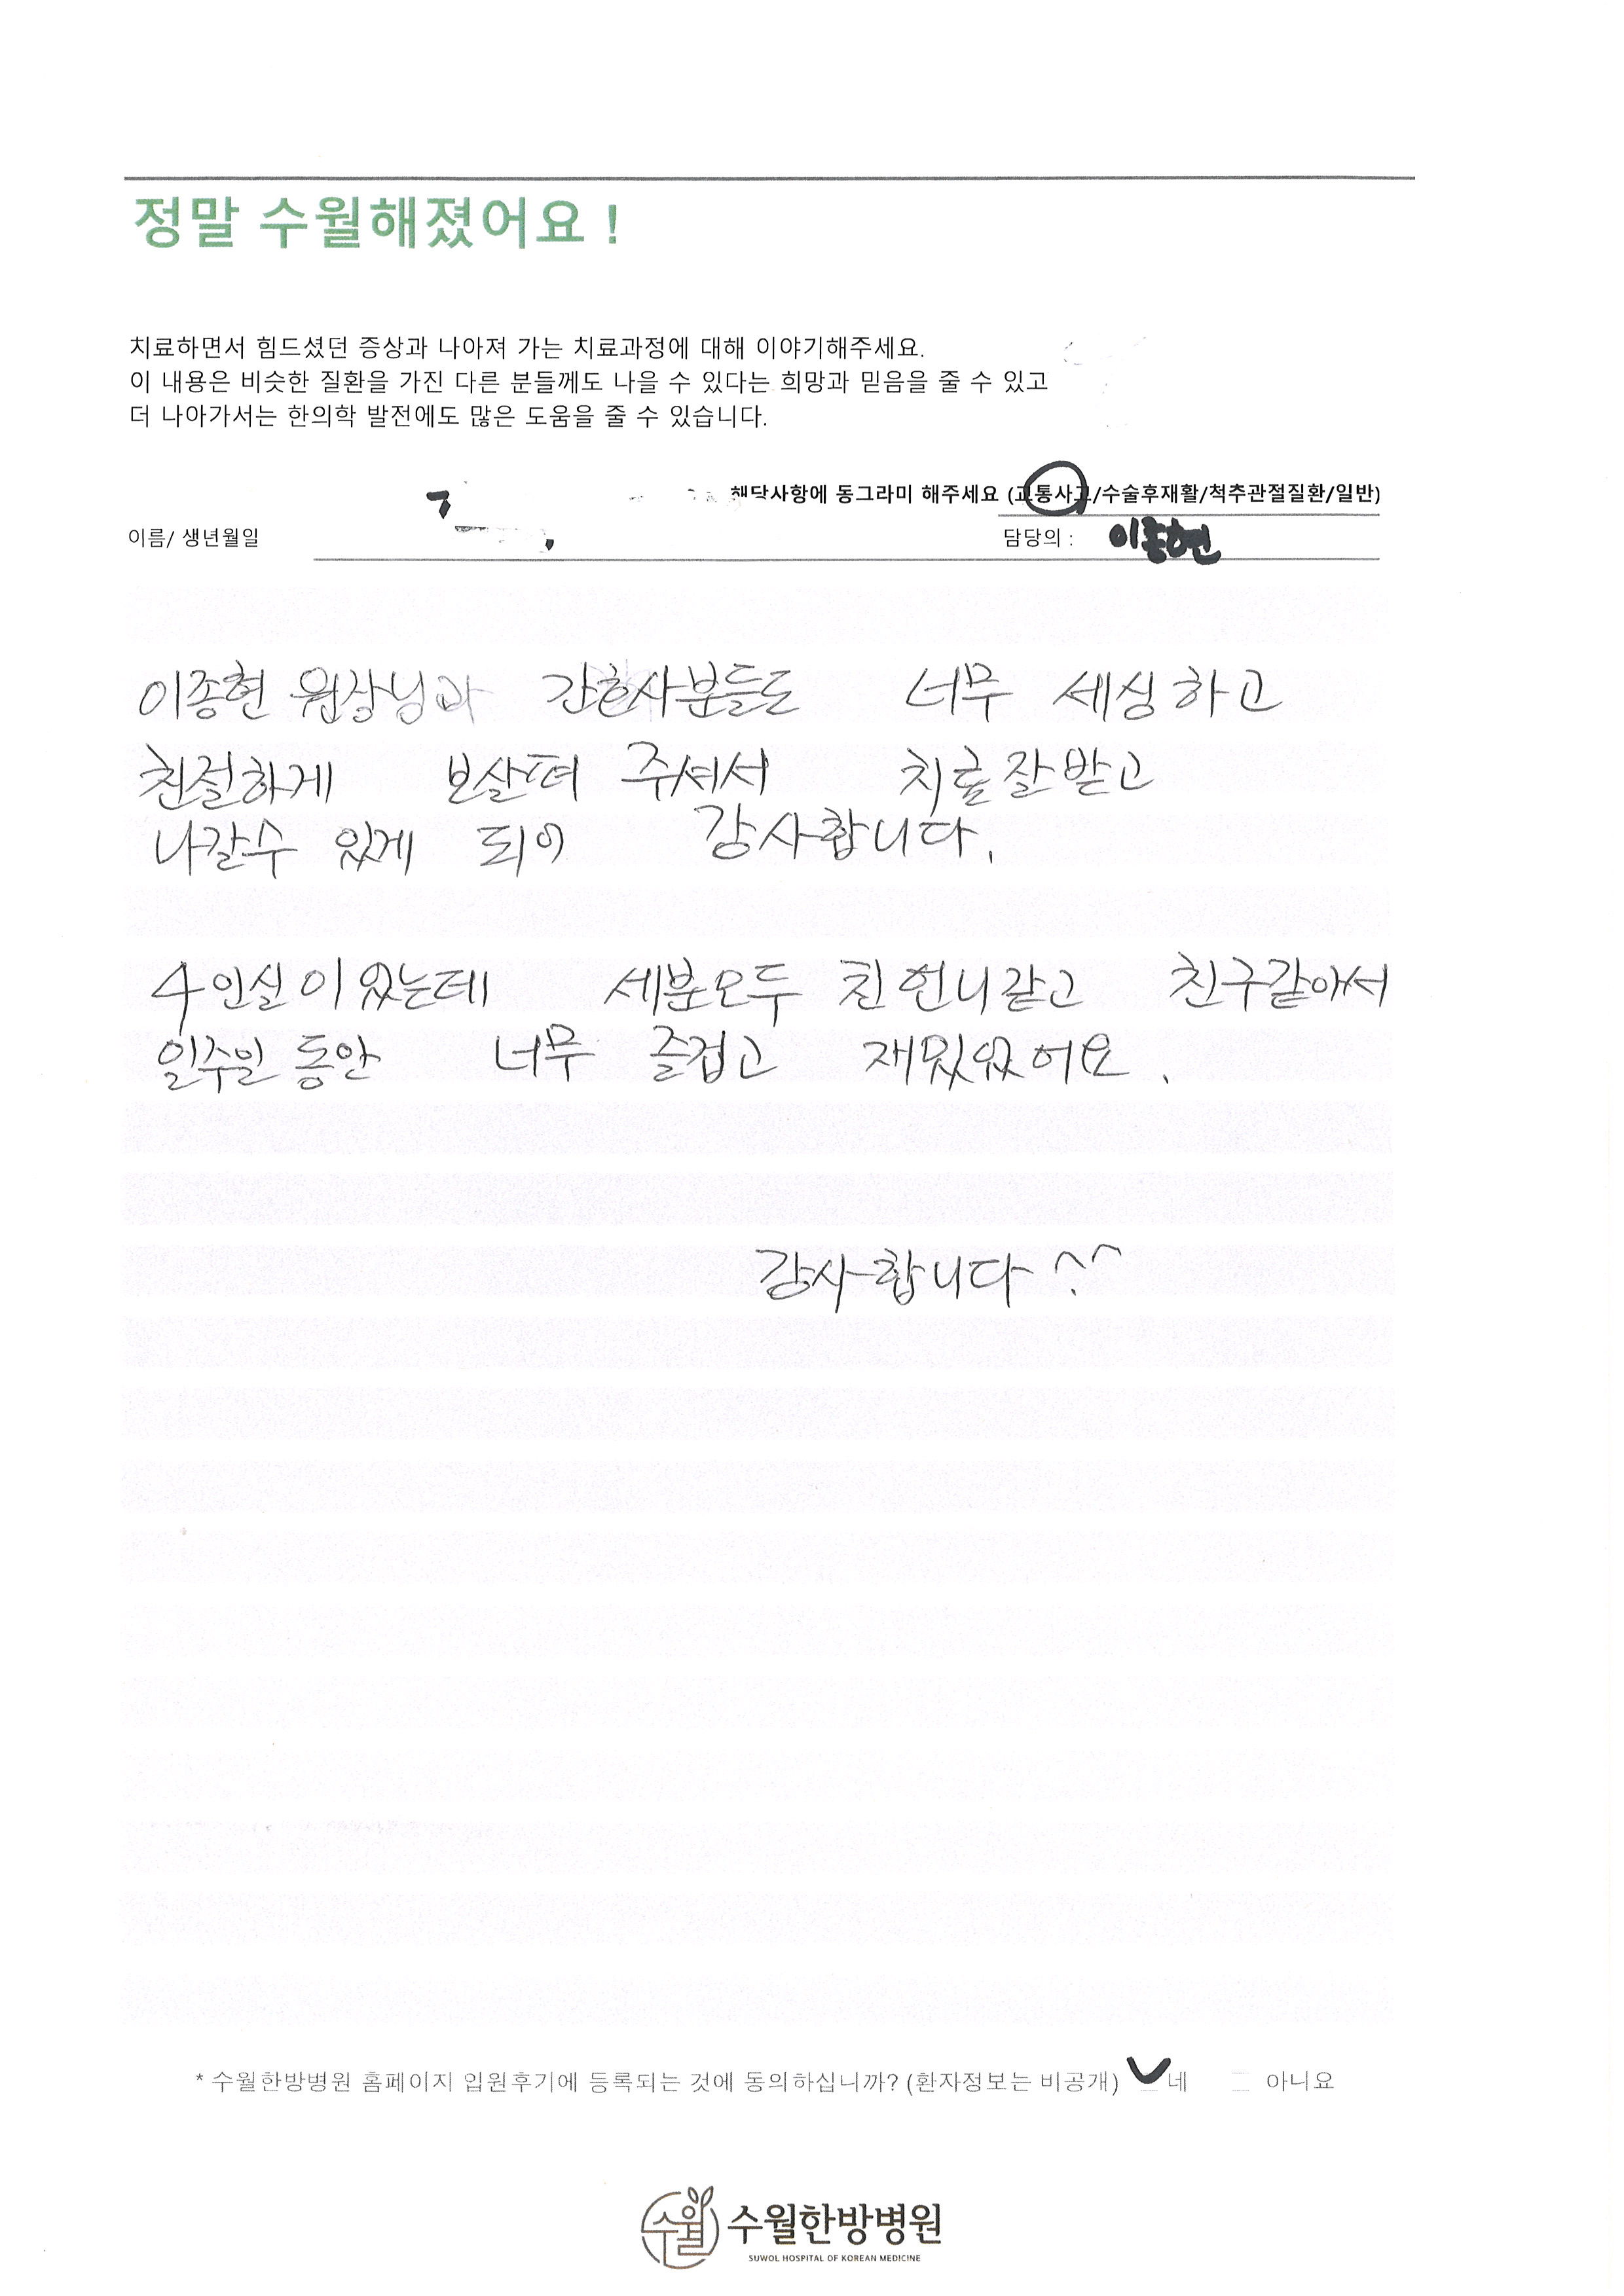 정말 수월해졌어요 !
치료하면서 힘드셨던 증상과 나아져 가는 치료과정에 대해 이야기해주세요.
이 내용은 비슷한 질환을 가진 다른 분들께도 나을 수 있다는 희망과 믿음을 줄 수 있고
더 나아가서는 한의학 발전에도 많은 도움을 줄 수 있습니다.
해당사항에 동그라미 해주세요 (교통사고/수술후재활/척추관절질환/일반)
이름/ 생년월일 담당의 : 이종현
이종현 원장님과 간호사분들도 너무 세심하고
친절하게 보살펴 주셔서 치료 잘 받고
나갈수 있게 되어 감사합니다.
4인실이 있는데 세분모두 친언니같고 친구같아서
일주일 동안 너무 즐겁고 재밌있어요.
감사합니다 ^^
* 수월한방병원 홈페이지 입원후기에 등록되는 것에 동의하십니까? (환자정보는 비공개) 네 아니요
수월 수월한방병원
SUWOL HOSPITAL OF KOREAN MEDICINE